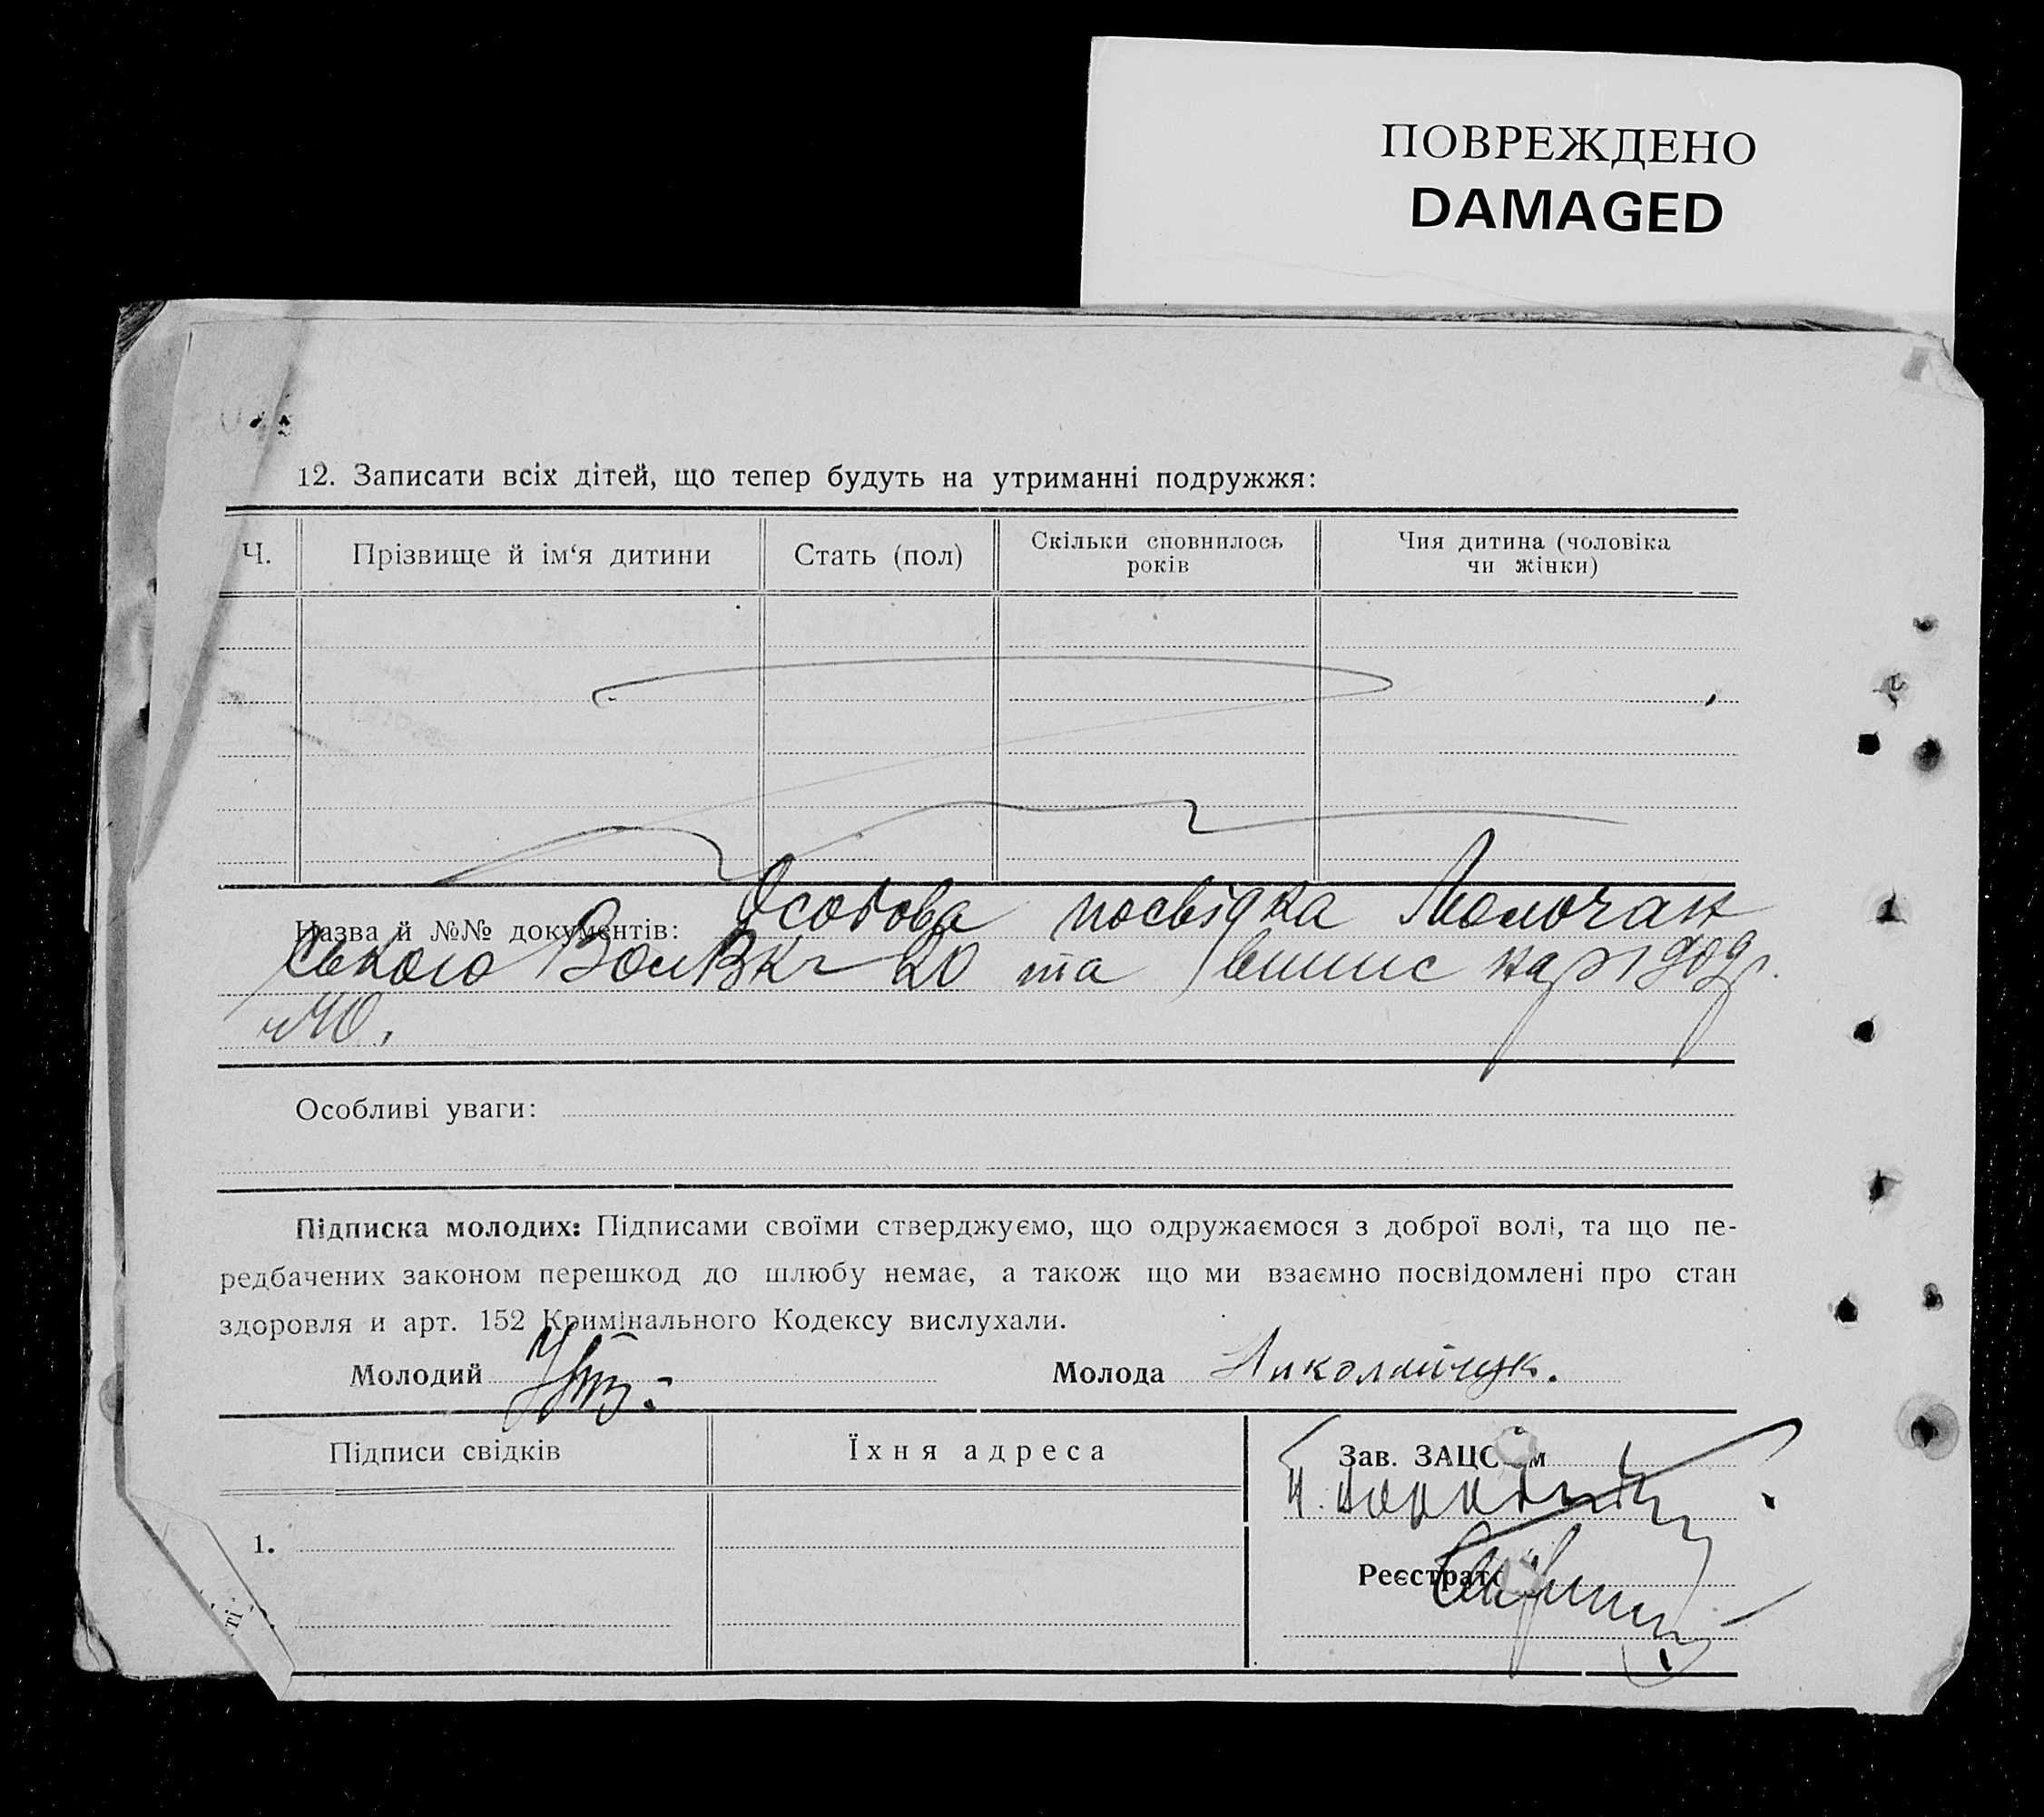 ПОВРЕЖДЕНО
DAMAGED
12. Записати всіх дітей, що тепер будуть на утриманні подружжя:
Ч.
Прізвище й ім‘я дитини
Стать (пол)
Скільки сповнилось
років
Чия дитина (чоловіка
чи жінки)
Назва й №№ документів: Особова посвідка Молочан
ського ВолВКу 20 та випис на 1909 р.
Особливі уваги:
Підписка молодих: Підписами своїми стверджуємо, що одружаємося з доброї волі, та що пе-
редбачених законом перешкод до шлюбу немає, а також що ми взаємно посвідомлені про стан
здоровля и арт. 152 Кримінального Кодексу вислухали.
Молодий
Молода Николайчук.
Підписи свідків
Їхня адреса
Зав. ЗАЦС м
1.
Реєстрато
ті